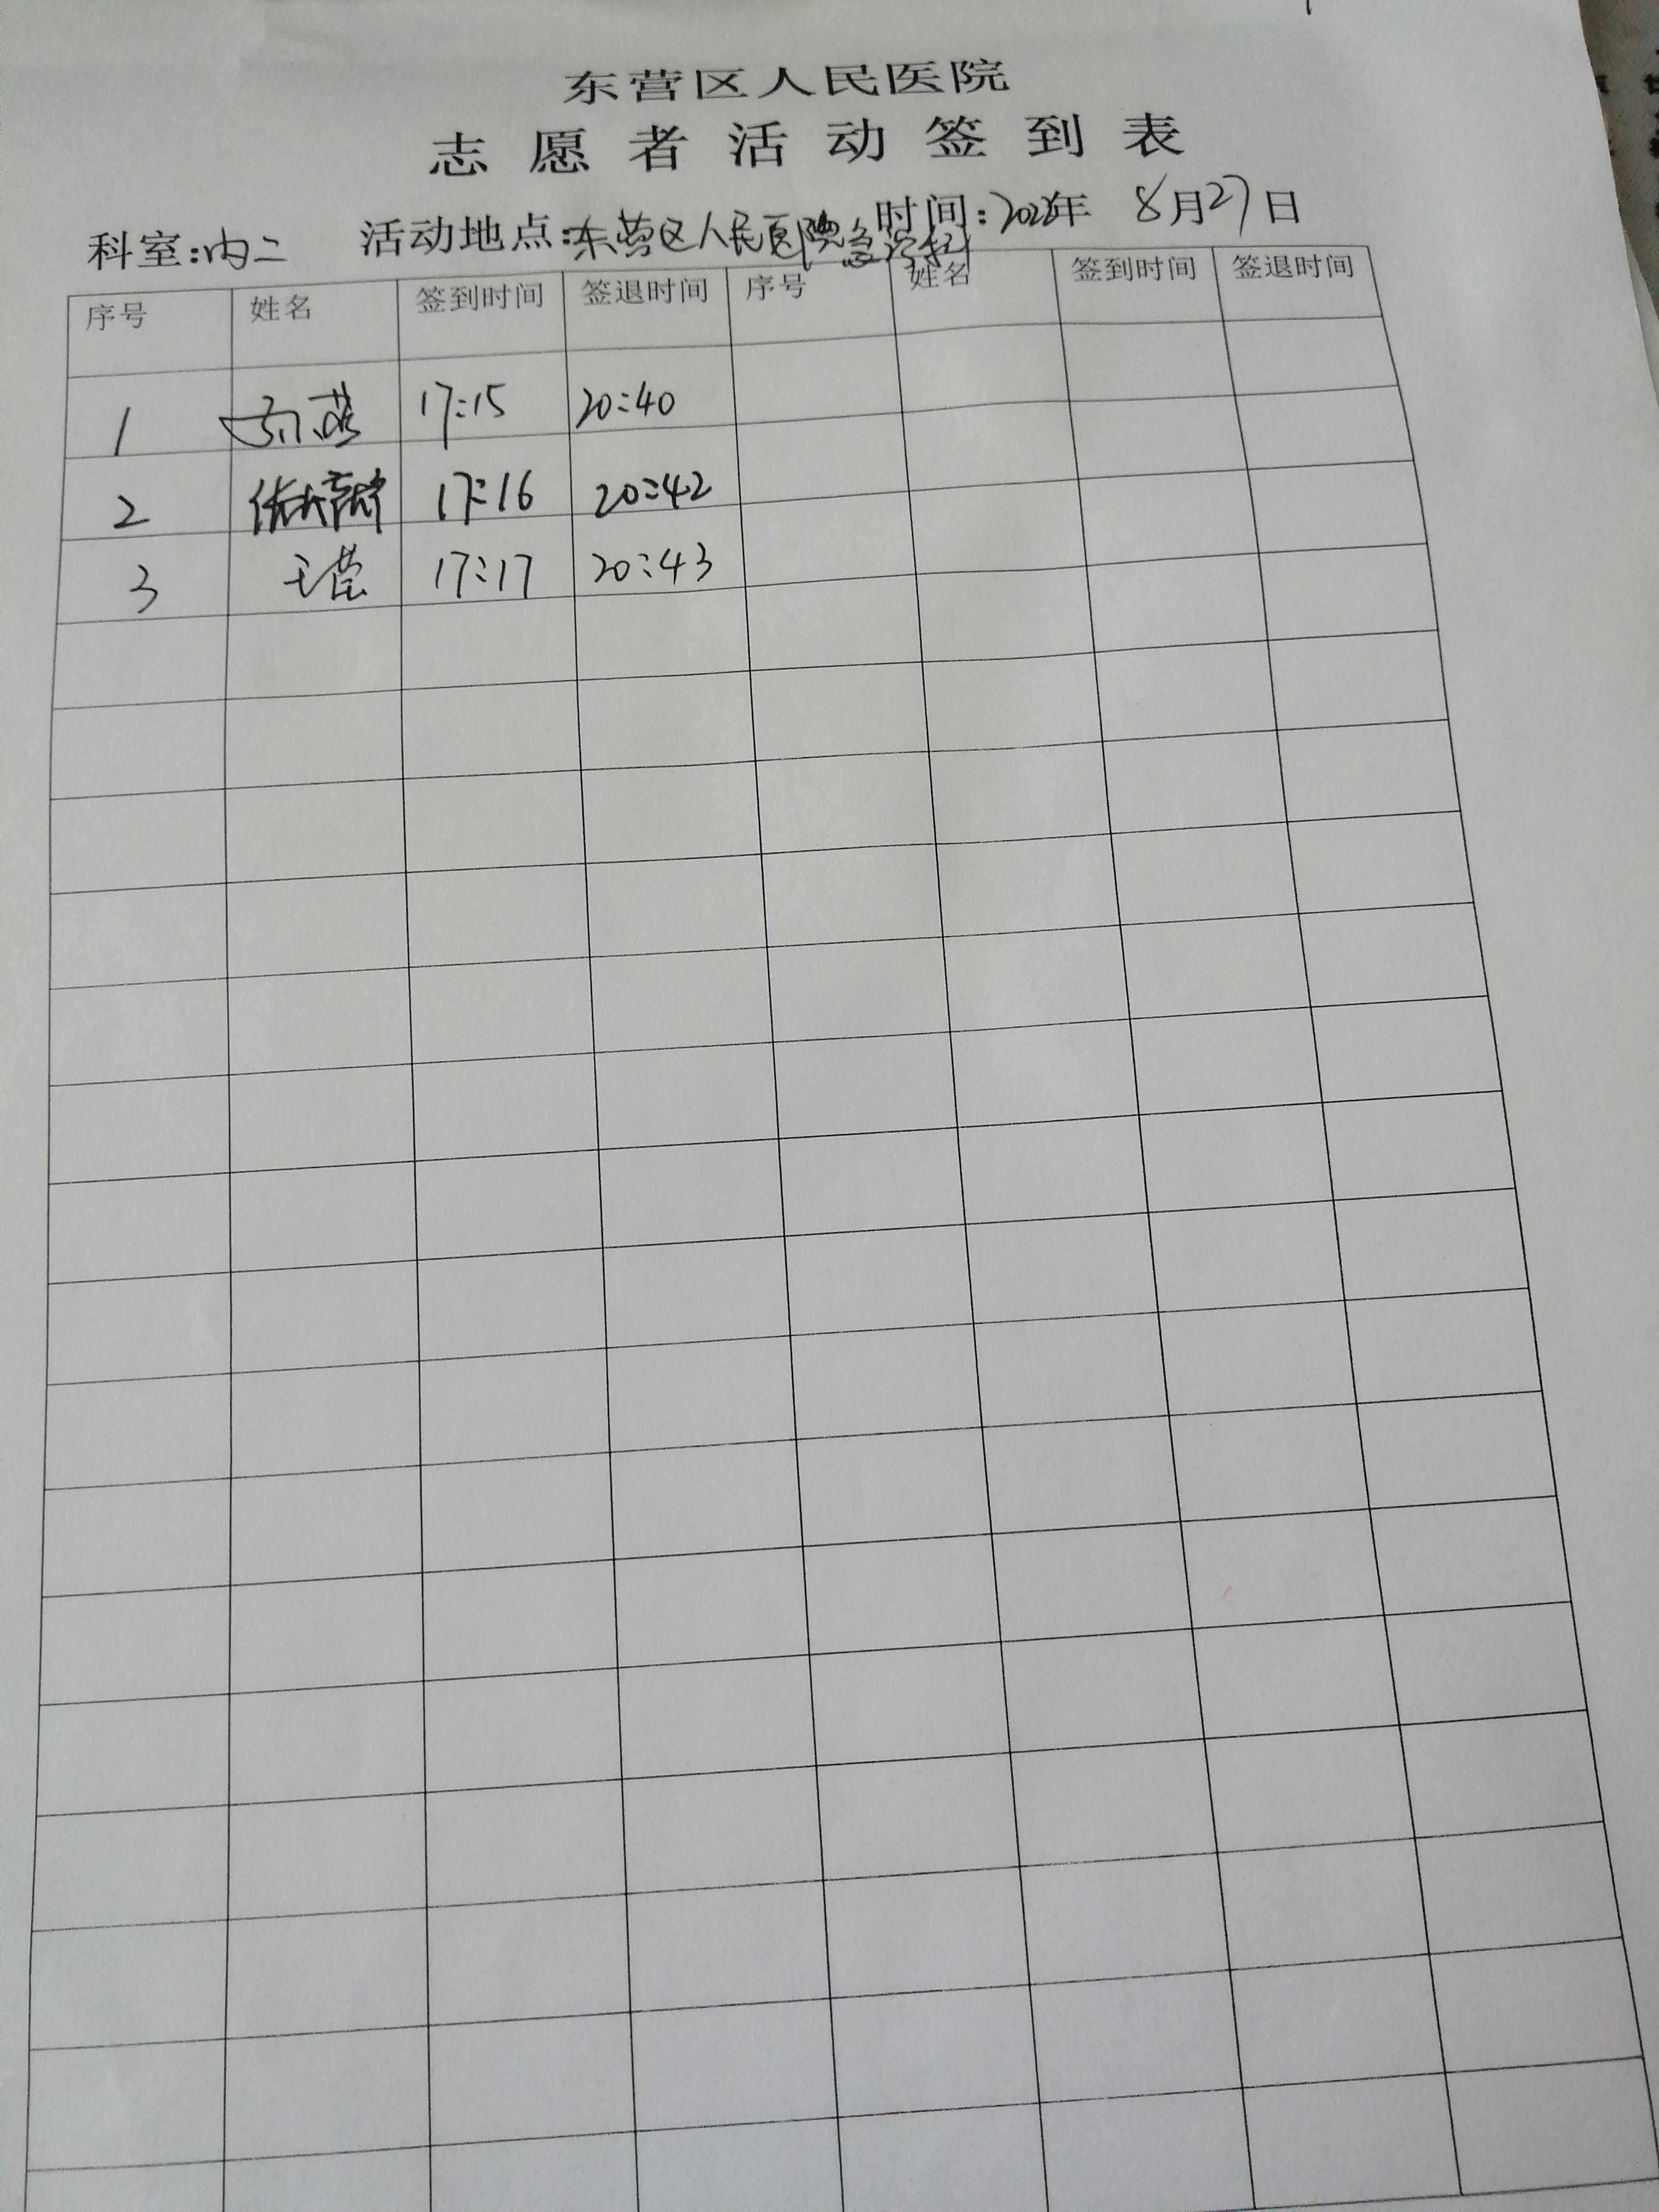 东营区人民医院
志愿者活动签到表
科室:内二 活动地点:东营区人民医院急诊科 时间:年 8月27日
序号 姓名 签到时间 签退时间 序号 姓名 签到时间 签退时间
1 17:15 20:40
2 17:16 20:42
3 王莹 17:17 20:43